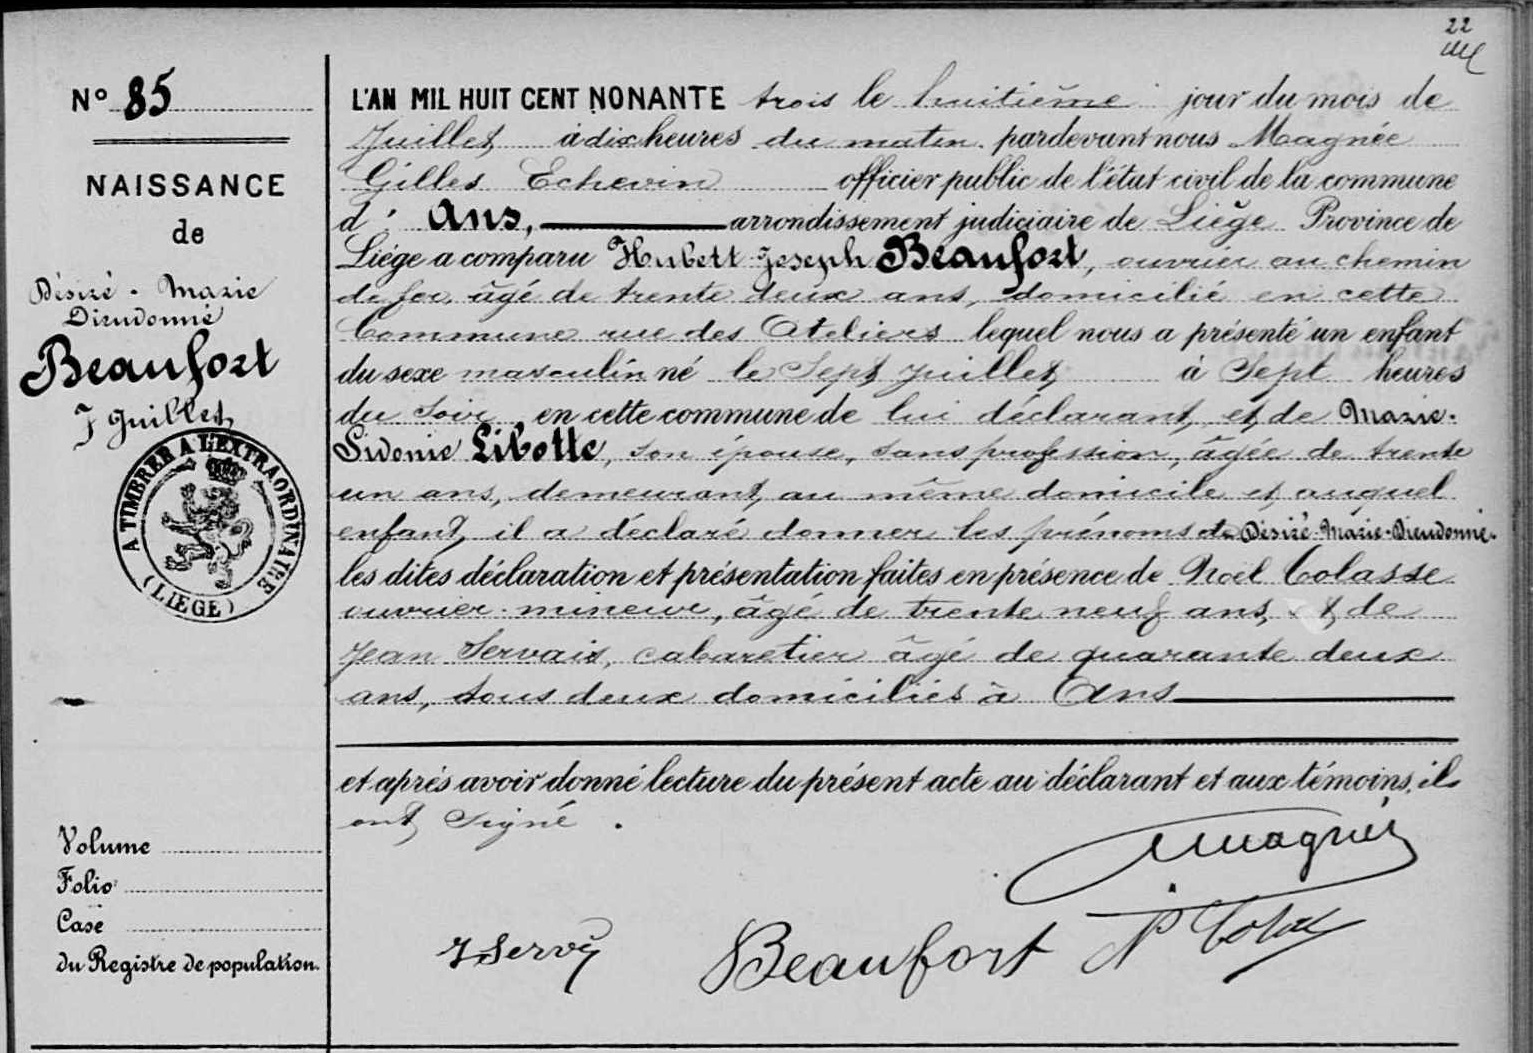 22
N° 85
NAISSANCE
de
Désiré - Marie
Dieudonné
Beaufort
7 Juillet
A TIMBRER A L'EXTRAORDINAIRE
(LIEGE)
Volume
Folio
Case
du Registre de population.
L'AN MIL HUIT CENT NONANTE trois le huitième jour du mois de
Juillet à dix heures du matin pardevant nous Magnée
Gilles Echevin officier public de l'état civil de la commune
d' Ans, arrondissement judiciaire de Liège Province de
Liége a comparu Hubert Joseph Beaufort, ouvrier au chemin
de fer âgé de trente deux ans, domicilié en cette
Commune rue des Ateliers lequel nous a présenté un enfant
du sexe masculin né le Sept Juillet à Sept heures
du soir en cette commune de lui déclarant et de Marie-
Sidonie Libotte, son épouse, sans profession, âgée de trente
un ans, demeurant au même domicile et auquel
enfant il a déclaré donner les prénoms de Désiré-Marie-Dieudonné.
les dites déclaration et présentation faites en présence de Noël Colasse
ouvrier mineur, âgé de trente neuf ans, et de
Jean Servais, cabaretier âgé de quarante deux
ans, tous deux domiciliés à Ans
et après avoir donné lecture du présent acte au déclarant et aux témoins, ils
ont signé.
Magnée
J Servy
Beaufort
N Colas